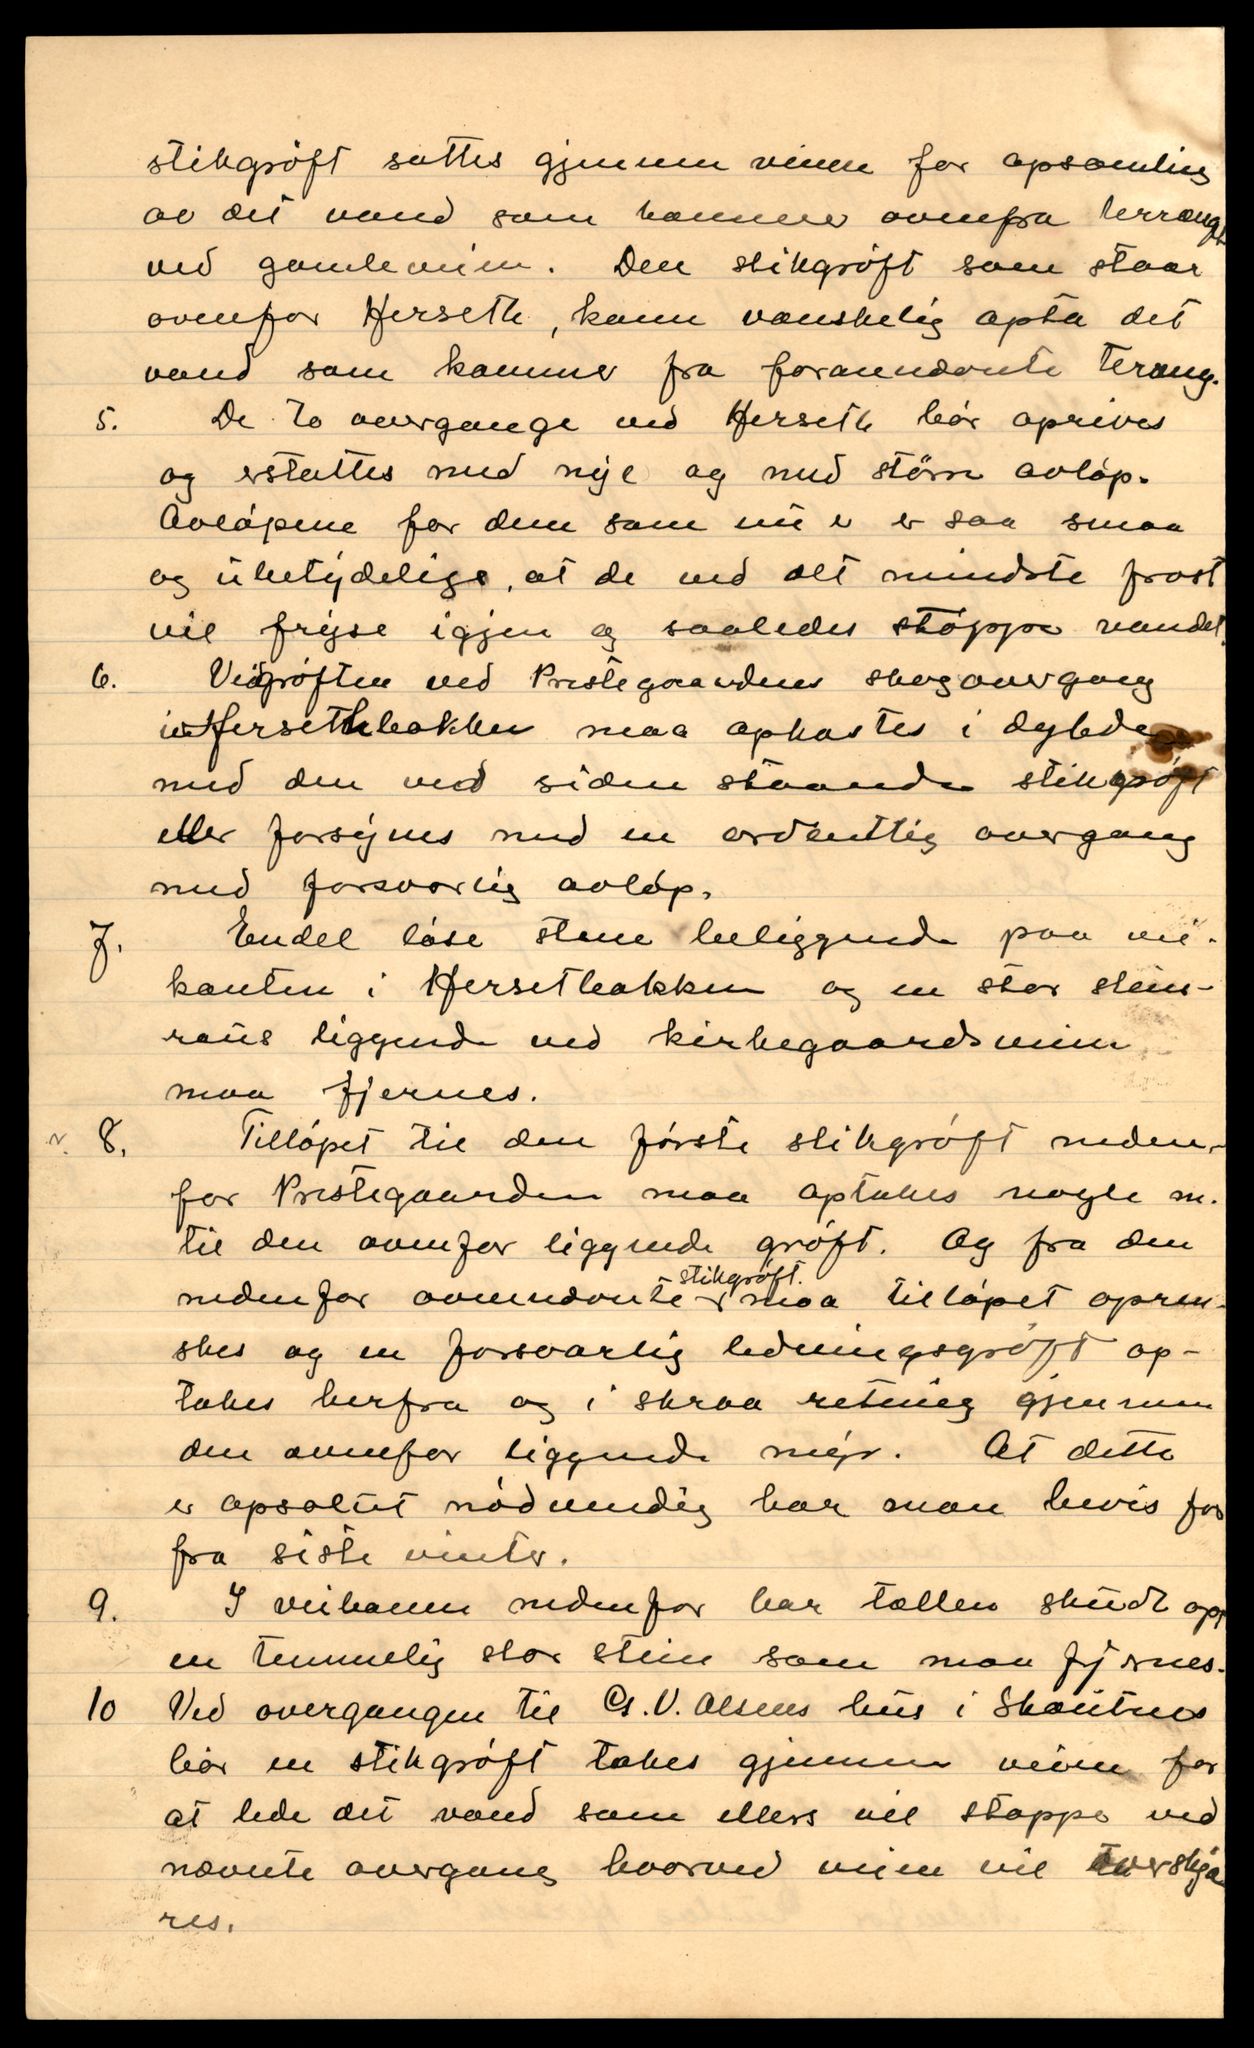 stikgrøft sættes gjennem veien for opsamling
av det vand som kommer ovenfra terrænget
ved gamleveien. Den stikgrøft som staar
ovenfor Herseth, kann vanskelig opta det
vand som kommer fra forannævnte teræng.
5. De to overgange ved Herseth bør oprives
og erstattes med nye og med større avløp.
Avløpene for dem som nu er er saa smaa
og ubetydelige, at de ved det mindste frost
vil fryse igjen og saaledes stoppe vandet.
6. Veigrøften ved Prestegaardens skogovergang
i Hersethbakken maa opkastes i dybde
med den ved siden staaende stikgrøft
eller forsynes med en ordentlig overgang
med forsvarlig avløp.
7. Endel løse stene beliggende paa vei-
kanten i Hersetbakken og en stor stein-
raus liggende ved kirkegaardsveien
maa fjernes.
8. Tilløpet til den første stikgrøft neden-
for Prestegaarden maa optakes nogle m.
til den ovenfor liggende grøft. Og fra den
nedenfor ovennævnte stikgrøft. maa tilløpet opren-
skes og en forsvarlig ledningsgrøft op-
takes herfra og i skraa retning gjennem
den ovenfor liggende myr. At dette
er apsolut nødvendig har man bevis for
fra siste vinter.
9. I veibanen nedenfor har tællen skudt op
en temmelig stor stein som maa fjernes.
10 Ved overgangen til Cs. V. Olsens hus i Skoutnes
bør en stikgrøft takes gjennem veien for
at lede det vand som ellers vil stoppe ved
nævnte overgang hvorved veien vil overskjæ
res.